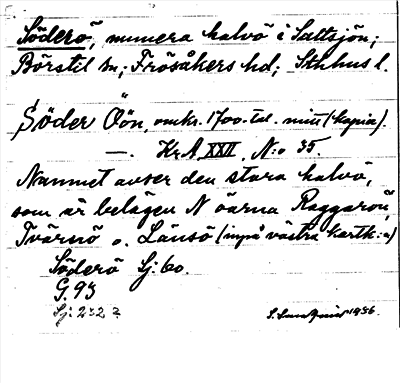 Söderö, numera halvö i Saltsjön;
Börstil sn; Frösåkers hd; Sthlms l.
Söder Öön, omkr. 1700-tal. mitt (kopia).
—. Kr.A. XXII, N:o 35
Namnet avser den stora halvö,
som är belägen N öarna Raggarön,
Tvärnö o. Länsö (inpå västra kartk:n)
Söderö Sj: 60.
G. 93
Sj: 232 ?
1936.